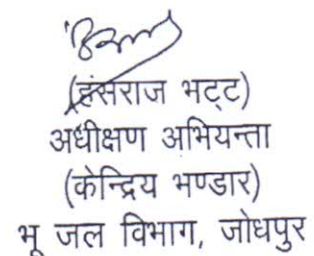 (हंसराज भट्ट)
अधीक्षण अभियन्ता
(केन्द्रिय भण्डार)
भू जल विभाग, जोधपुर